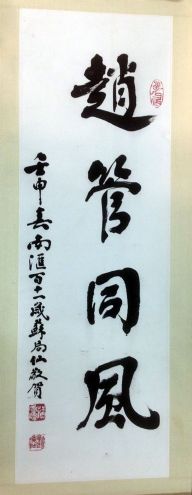 趙管同風
壬申春南匯百十一歲蘇局仙敬賀